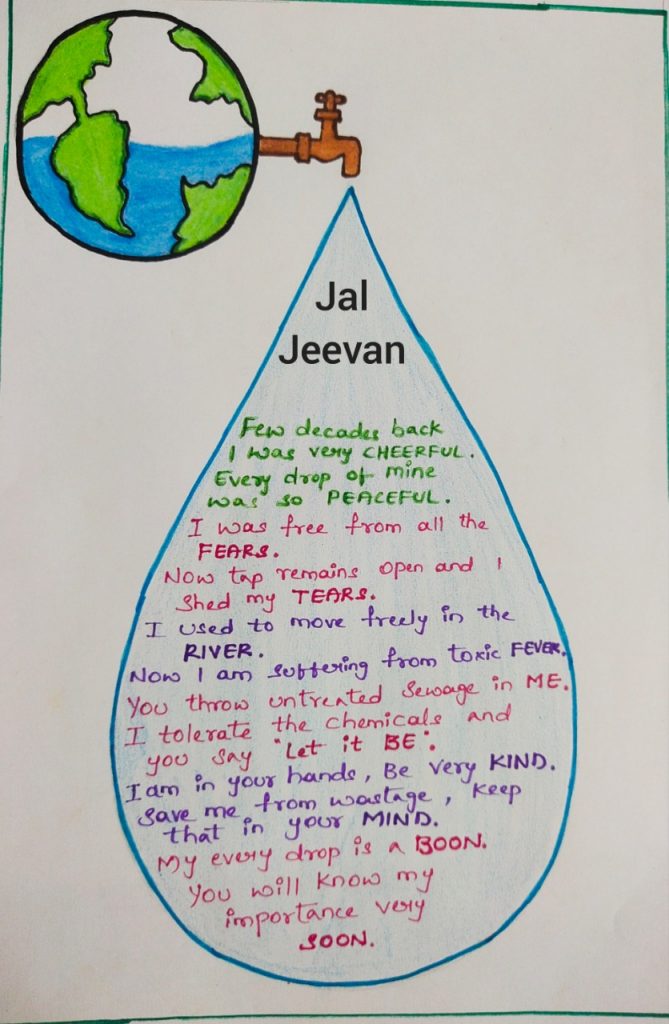 Jal
Jeevan
Few decades back
I was very CHEERFUL.
Every drop of mine
was so PEACEFUL.
I was free from all the
FEARS.
Now tap remains open and I
shed my TEARS.
I used to move freely in the
RIVER.
Now I am suffering from toxic FEVER.
You throw untreated sewage in ME.
I tolerate the chemicals and
you say "Let it BE".
I am in your hands, Be very KIND.
Save me from wastage, keep
that in your MIND.
My every drop is a BOON.
You will know my
importance very
SOON.